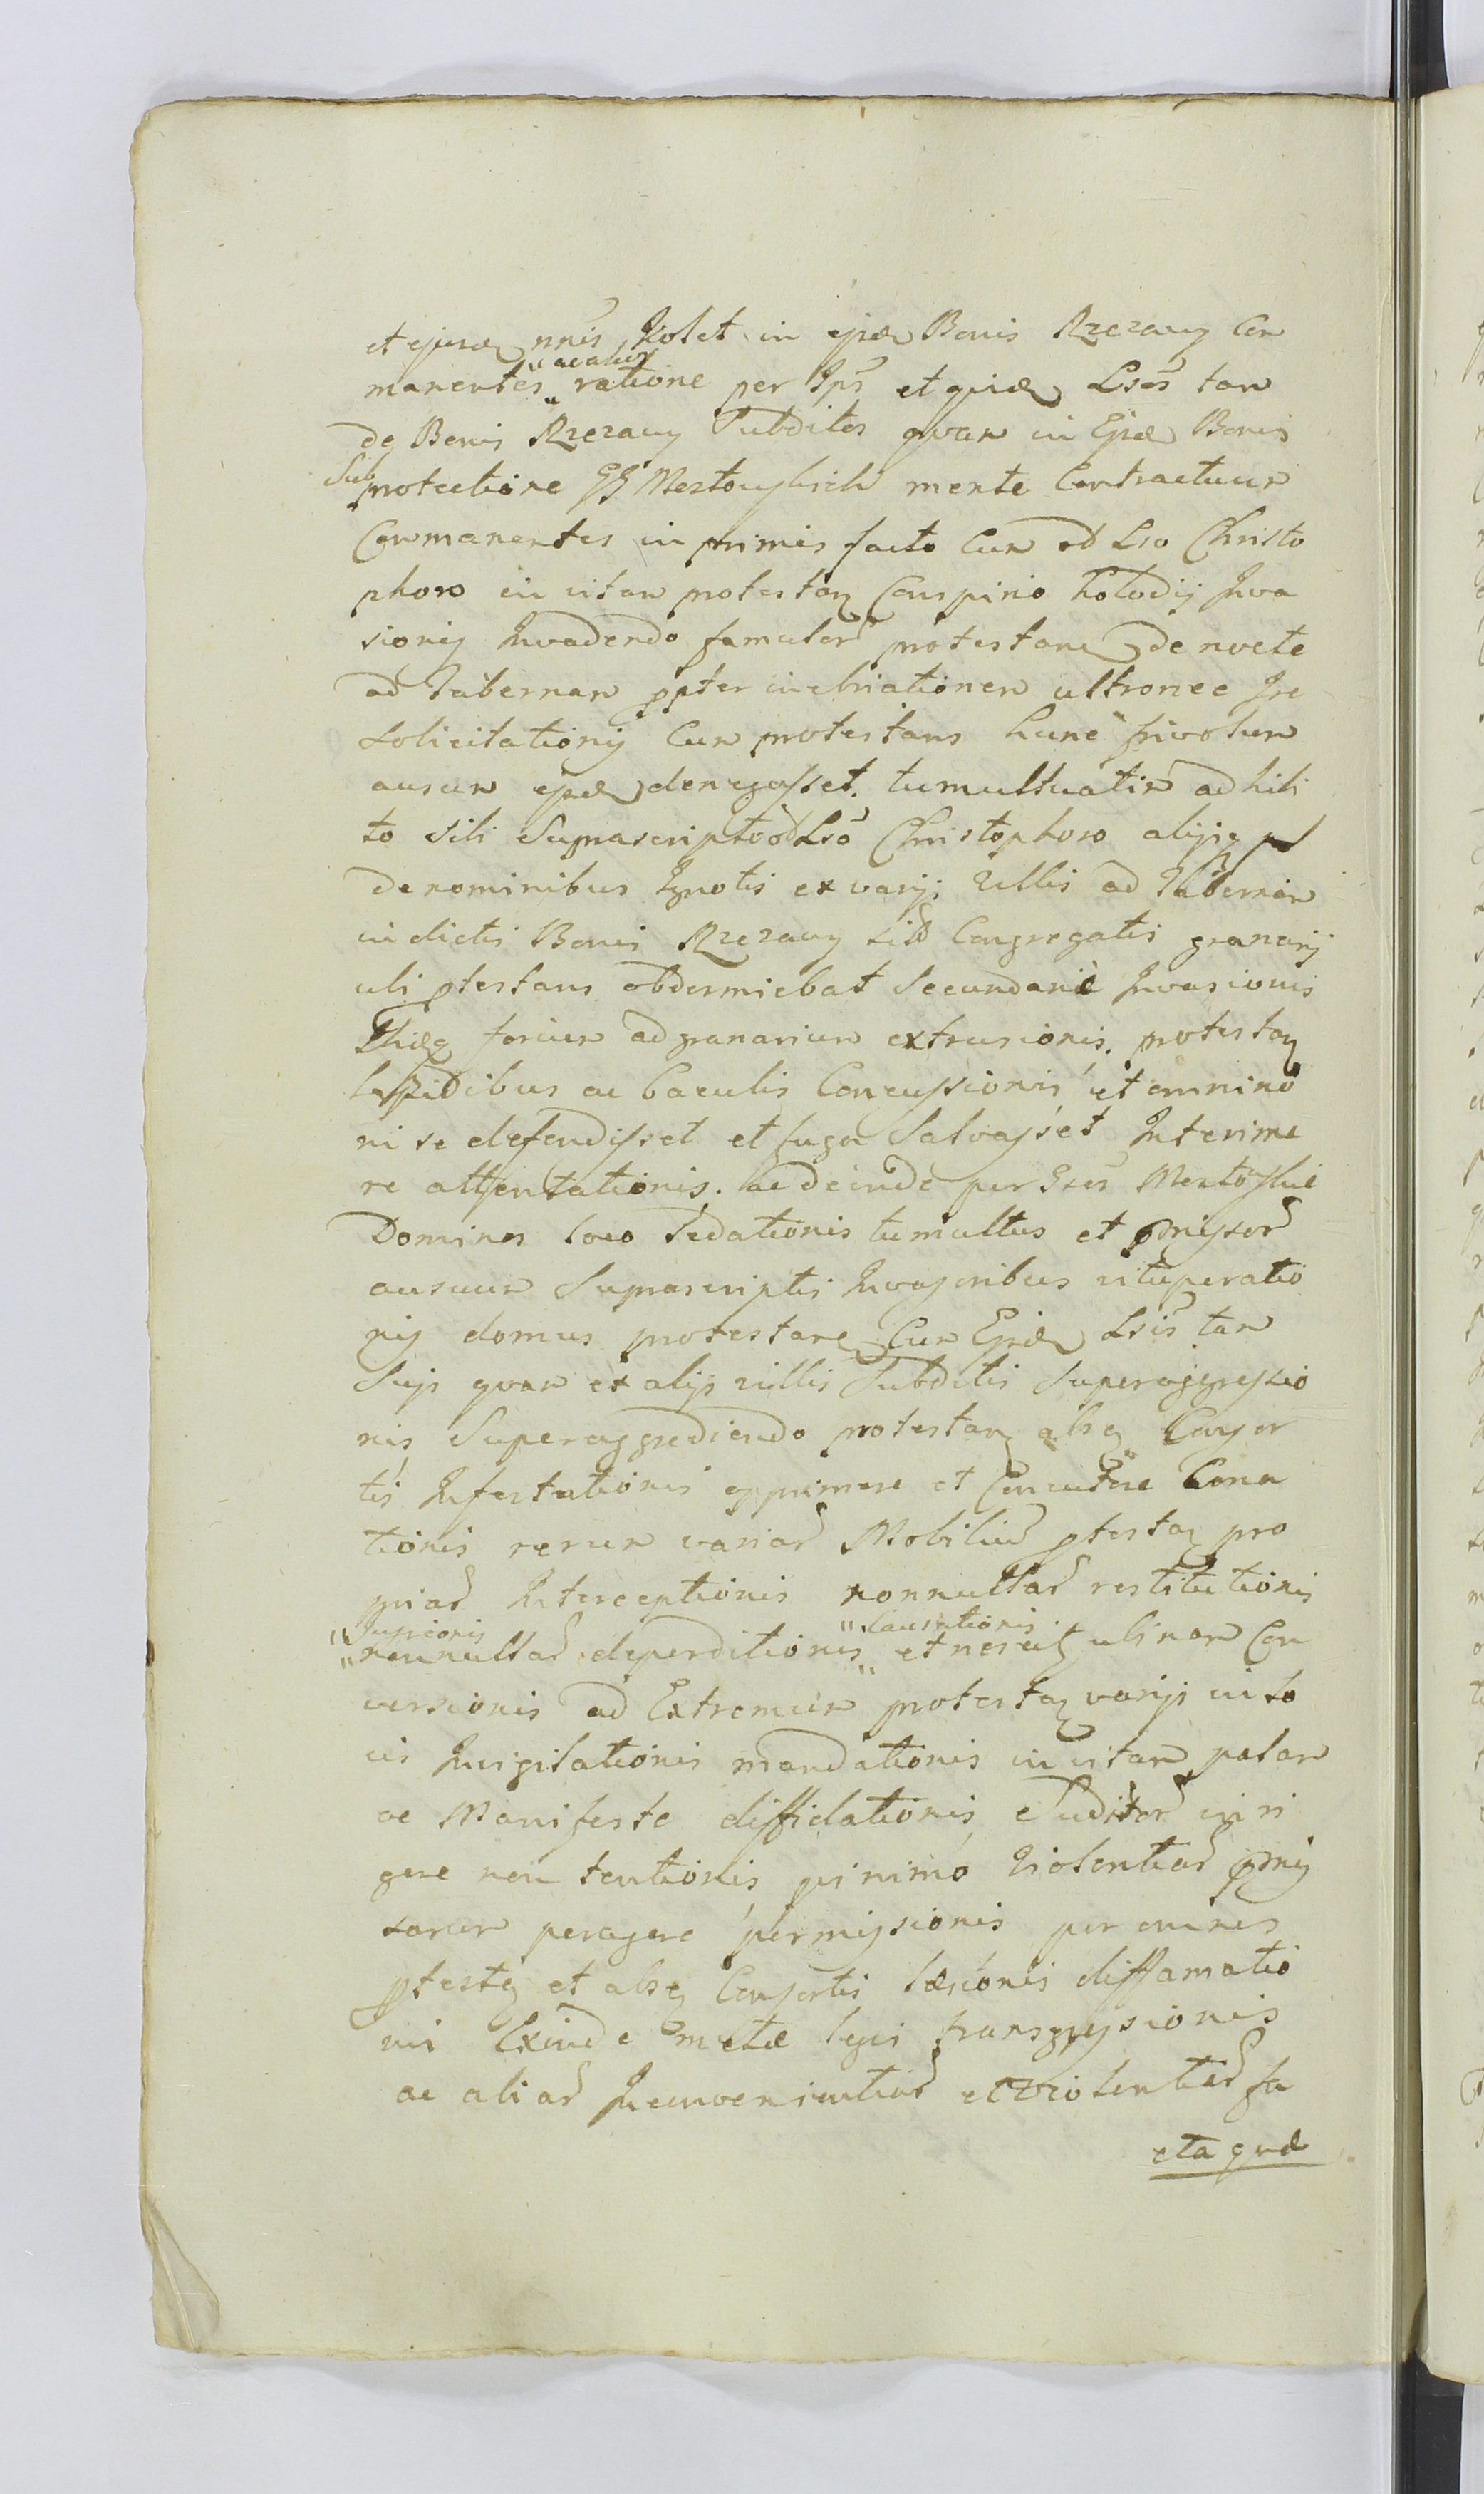 et ejusd nnis Kolet in ejsd Bonis Rzezawy Com
manentes "ac alias" ratione per Ips et quid Lses tam
de Bonis Rzezawy Subditos qvam in Ejsd Bonis
Sub protectione GG Mertowskich mente Contractuum
Commanentes in primis facto Cum od Lso Christo
phoro in vitam protestan Conspirio Kolodij Inva
sionis Invadendo famulor protestans de nocte
ad Tabernam ppter inebriationem ultronee Ire
Solicitationis Cum protestans hunc frivolum
ausum ejsd denegasset. tumultuatim adhibi
to sibi Suprascripto od Lso Christophoro alijsq
de nominibus Ignotis ex varijs villis ad Tabernam
in dictis Bonis Rzezawy sitd Congregatis granarij
ubi ptestans obdormiebat Secundarie Invasionis
forium ad granarium extrusionis. protestan
lapidibus ac baculis Concussionis et omnino
ni se defendisset et fuga Salvasset Interime
re attentationis. ac deinde per Gsos
Dominos loco Sedationis tumultus et pmissor
ausuum Suprascriptis Invasoribus vituperatio
nis domus protestans Cum Ejsd Lsis tam
Suis qvam ex alijs villis Subditis Superaggressio
nis Superaggrediendo protestan absq Consor
tis Infestationis opprimere et Concutere Cona
tionis rerum variar Mobilium ptestan pro
priar Interceptionis nonnullar restitutionis
"Jussionis" nonnullar deperditionis "Causationis" et nescitq ubinam Con
versionis ad Extremum protestan varijs in lo
cis Invigilationis mandationis in vitam palam
ac Manifeste diffidationis Subditor corri
gere non tentionis quinimo Violentiar pmis
sarum peragere permissionis per omnes
ptestq et absq Consortis læsionis diffamatio
nis Exinde metæ legis transgressionis
ac aliar Inconvenientiar et violentiar fa
cta qvæ